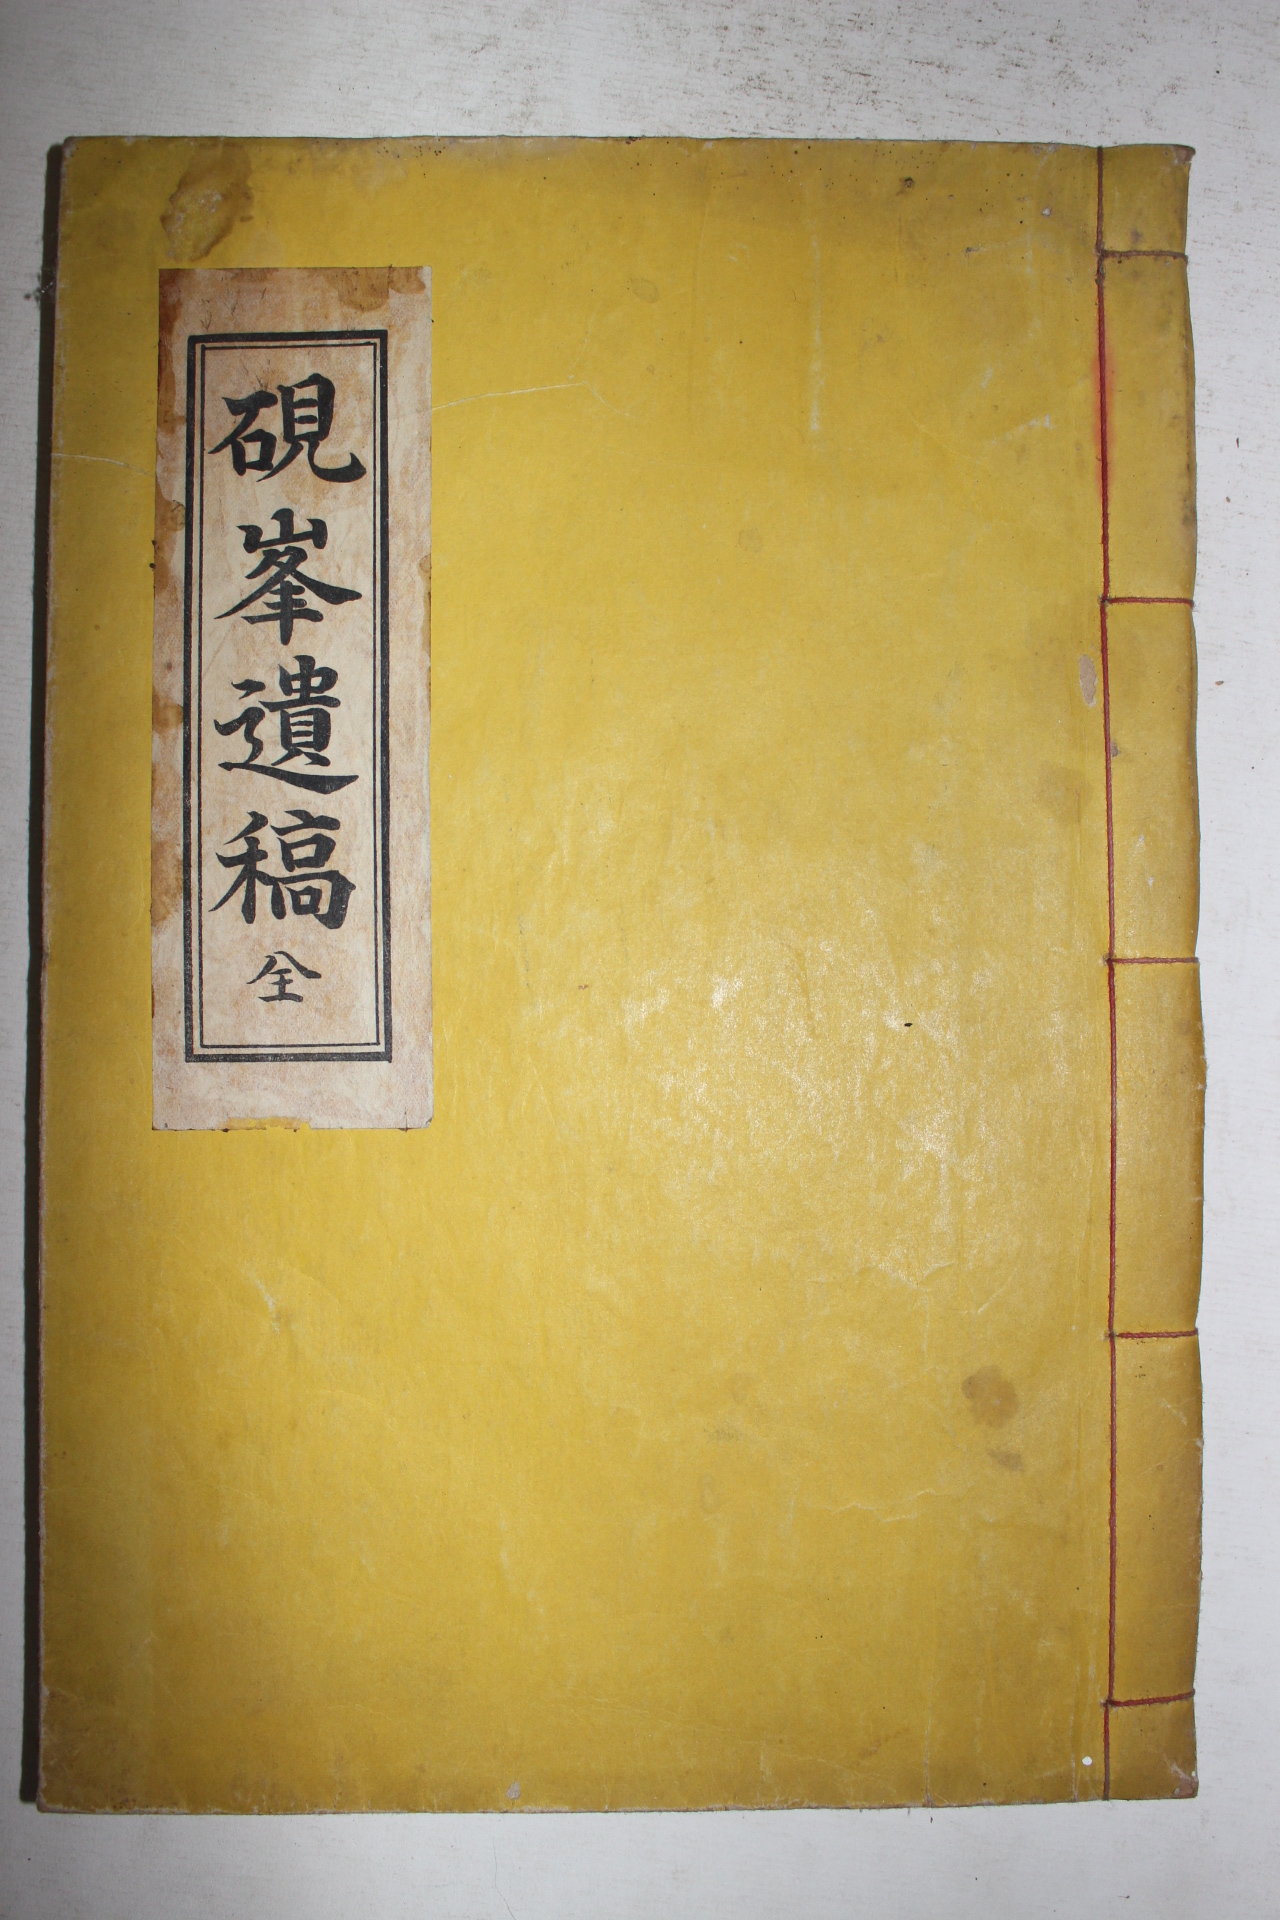 硯峯遺稿 全